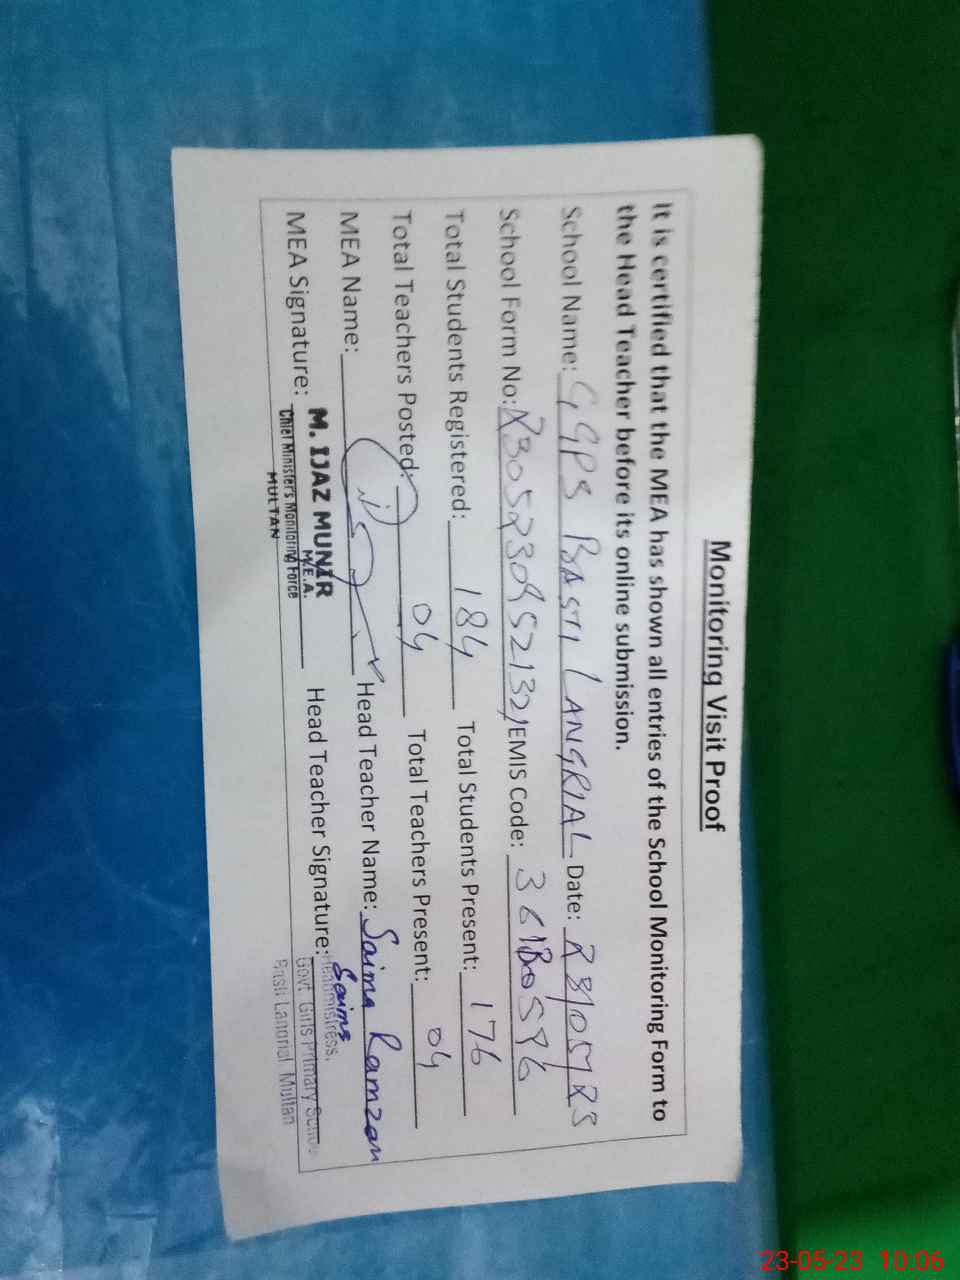 Monitoring Visit Proof
It is certified that the MEA has shown all entries of the School Monitoring Form to
the Head Teacher before its online submission.
School Name: GGPS BASTI LANGRIAL Date: 23/05/23
School Form No: EMIS Code:
Total Students Registered: 184 Total Students Present: 176
Total Teachers Posted: 04 Total Teachers Present: 04
MEA Name: Head Teacher Name: Saima Ramzan
MEA Signature: M. IJAZ MUNIR Head Teacher Signature: Saima
M.E.A.
Chief Minister's Monitoring Force
MULTAN
Headmistress,
Govt Girls Primary School
Basti Langrial Multan
23-05-23 10:06